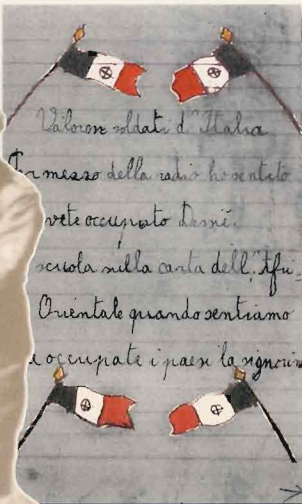 Valorosi soldati d'Italia
Per mezzo della radio ho sentito
avete occupato Dessiè.
scuola sulla carta dell'Afri=
Orientale quando sentiamo
e occupate i paesi la signorina